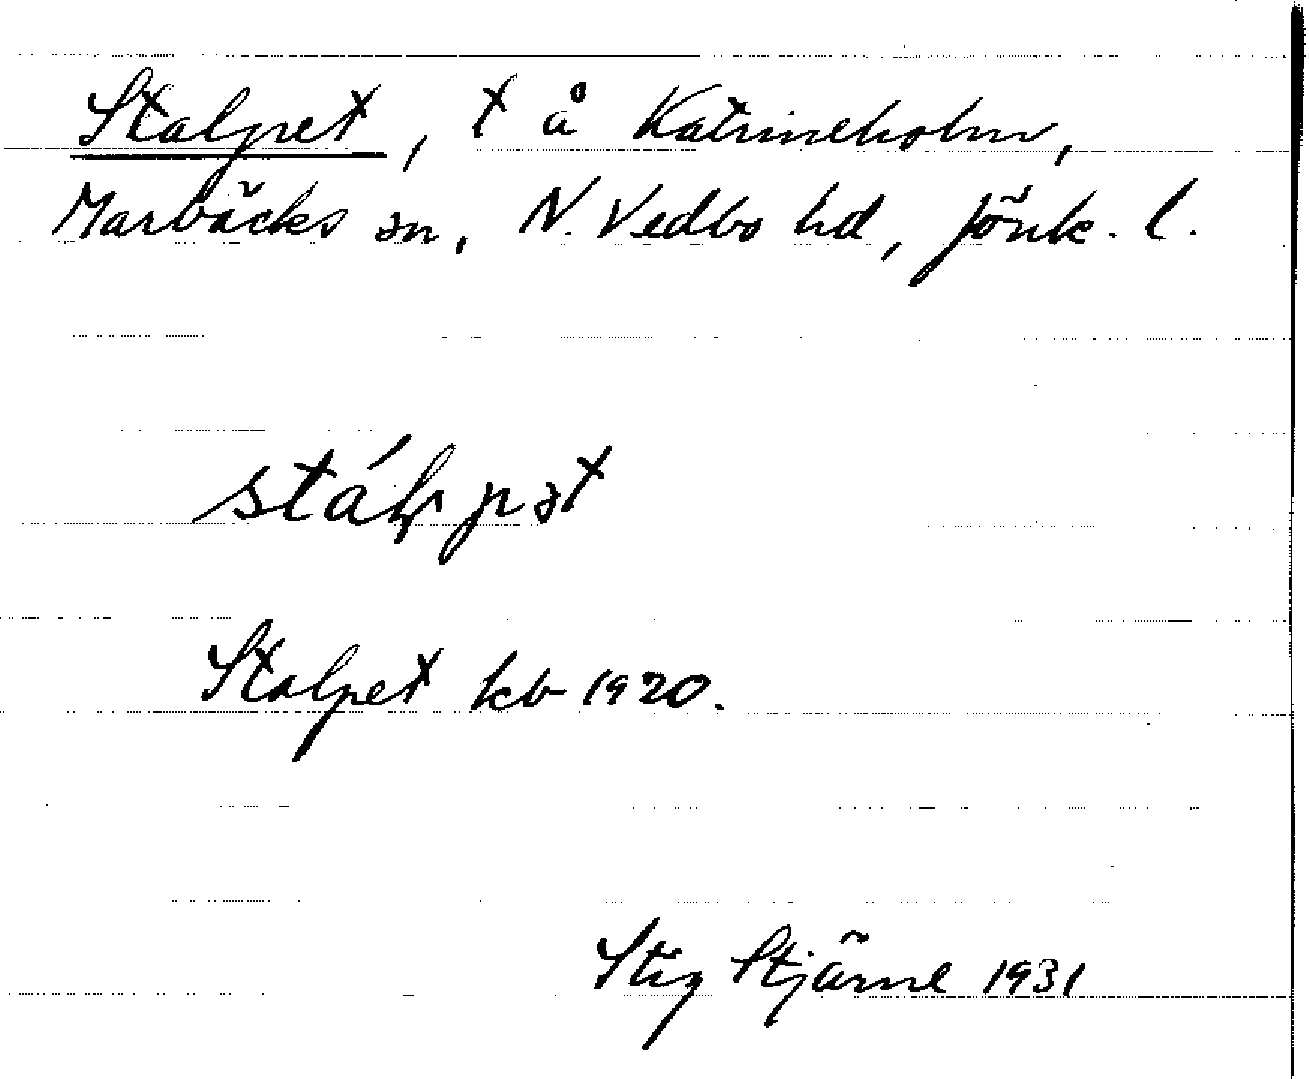 Stalpet, t å Katrineholm,
Marbäcks sn, N. Vedbo hd, Jönk. l.
stálpət
Stalpet kb 1920.
Stig Stjärne 1931